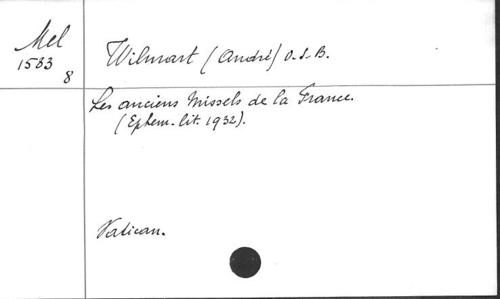 Mel
1533
8
Wilmart (André) O.S.B.
Les anciens Missels de la France.
(Ephem. lit. 1932).
Vatican.